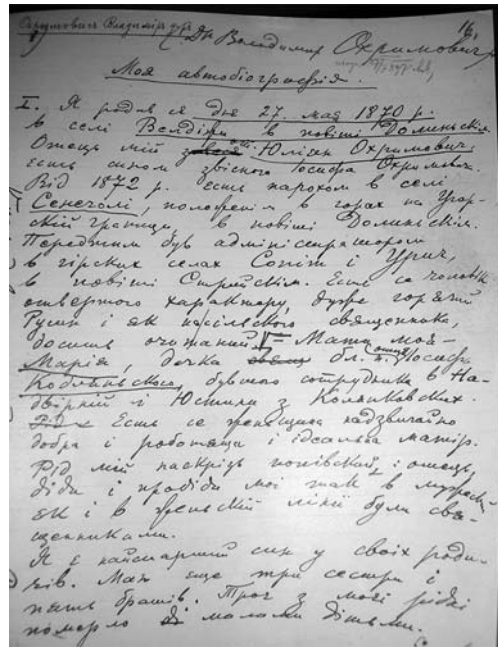 Охримович Володимир д-р
16.
Др Володимир Охримович
Моя автобіографія.
I. Я родив ся дня 27. мая 1870 р.
в селі Велдіжи в повіті Долиньскім.
Отець мій Юліян Охримович,
єсть сином звісного Іосифа Охримович.
Від 1872 р. єсть парохом в селі
Сенечолі, положенім в горах на Угор-
скій границі в повіті Долиньскім.
Передтим був адміністратором
в гірских селах Сопіт і Урич,
в повіті Стрийскім. Єсть се чоловік
отвертого характеру, дуже горячий
Русин і як на сільского священника,
досить очитаний. Мати моя
Марія, дочка бл. п. отця Іосифа
Кобриньского, бувшого сотрудника в На-
двірній і Юстини з Колянковских.
Єсть се женщина надзвичайно
добра і робоча і ідеальна матір.
Рід мій наскрізь попівский; отець,
діди і прадіди мої так в мужескій
як і в женьскій лінії були свя-
щенниками.
Я є найстарший син у своїх роди-
чів. Маю ще три сестри і
пять братів. Троє з моєї рідні
померло малими дітьми.